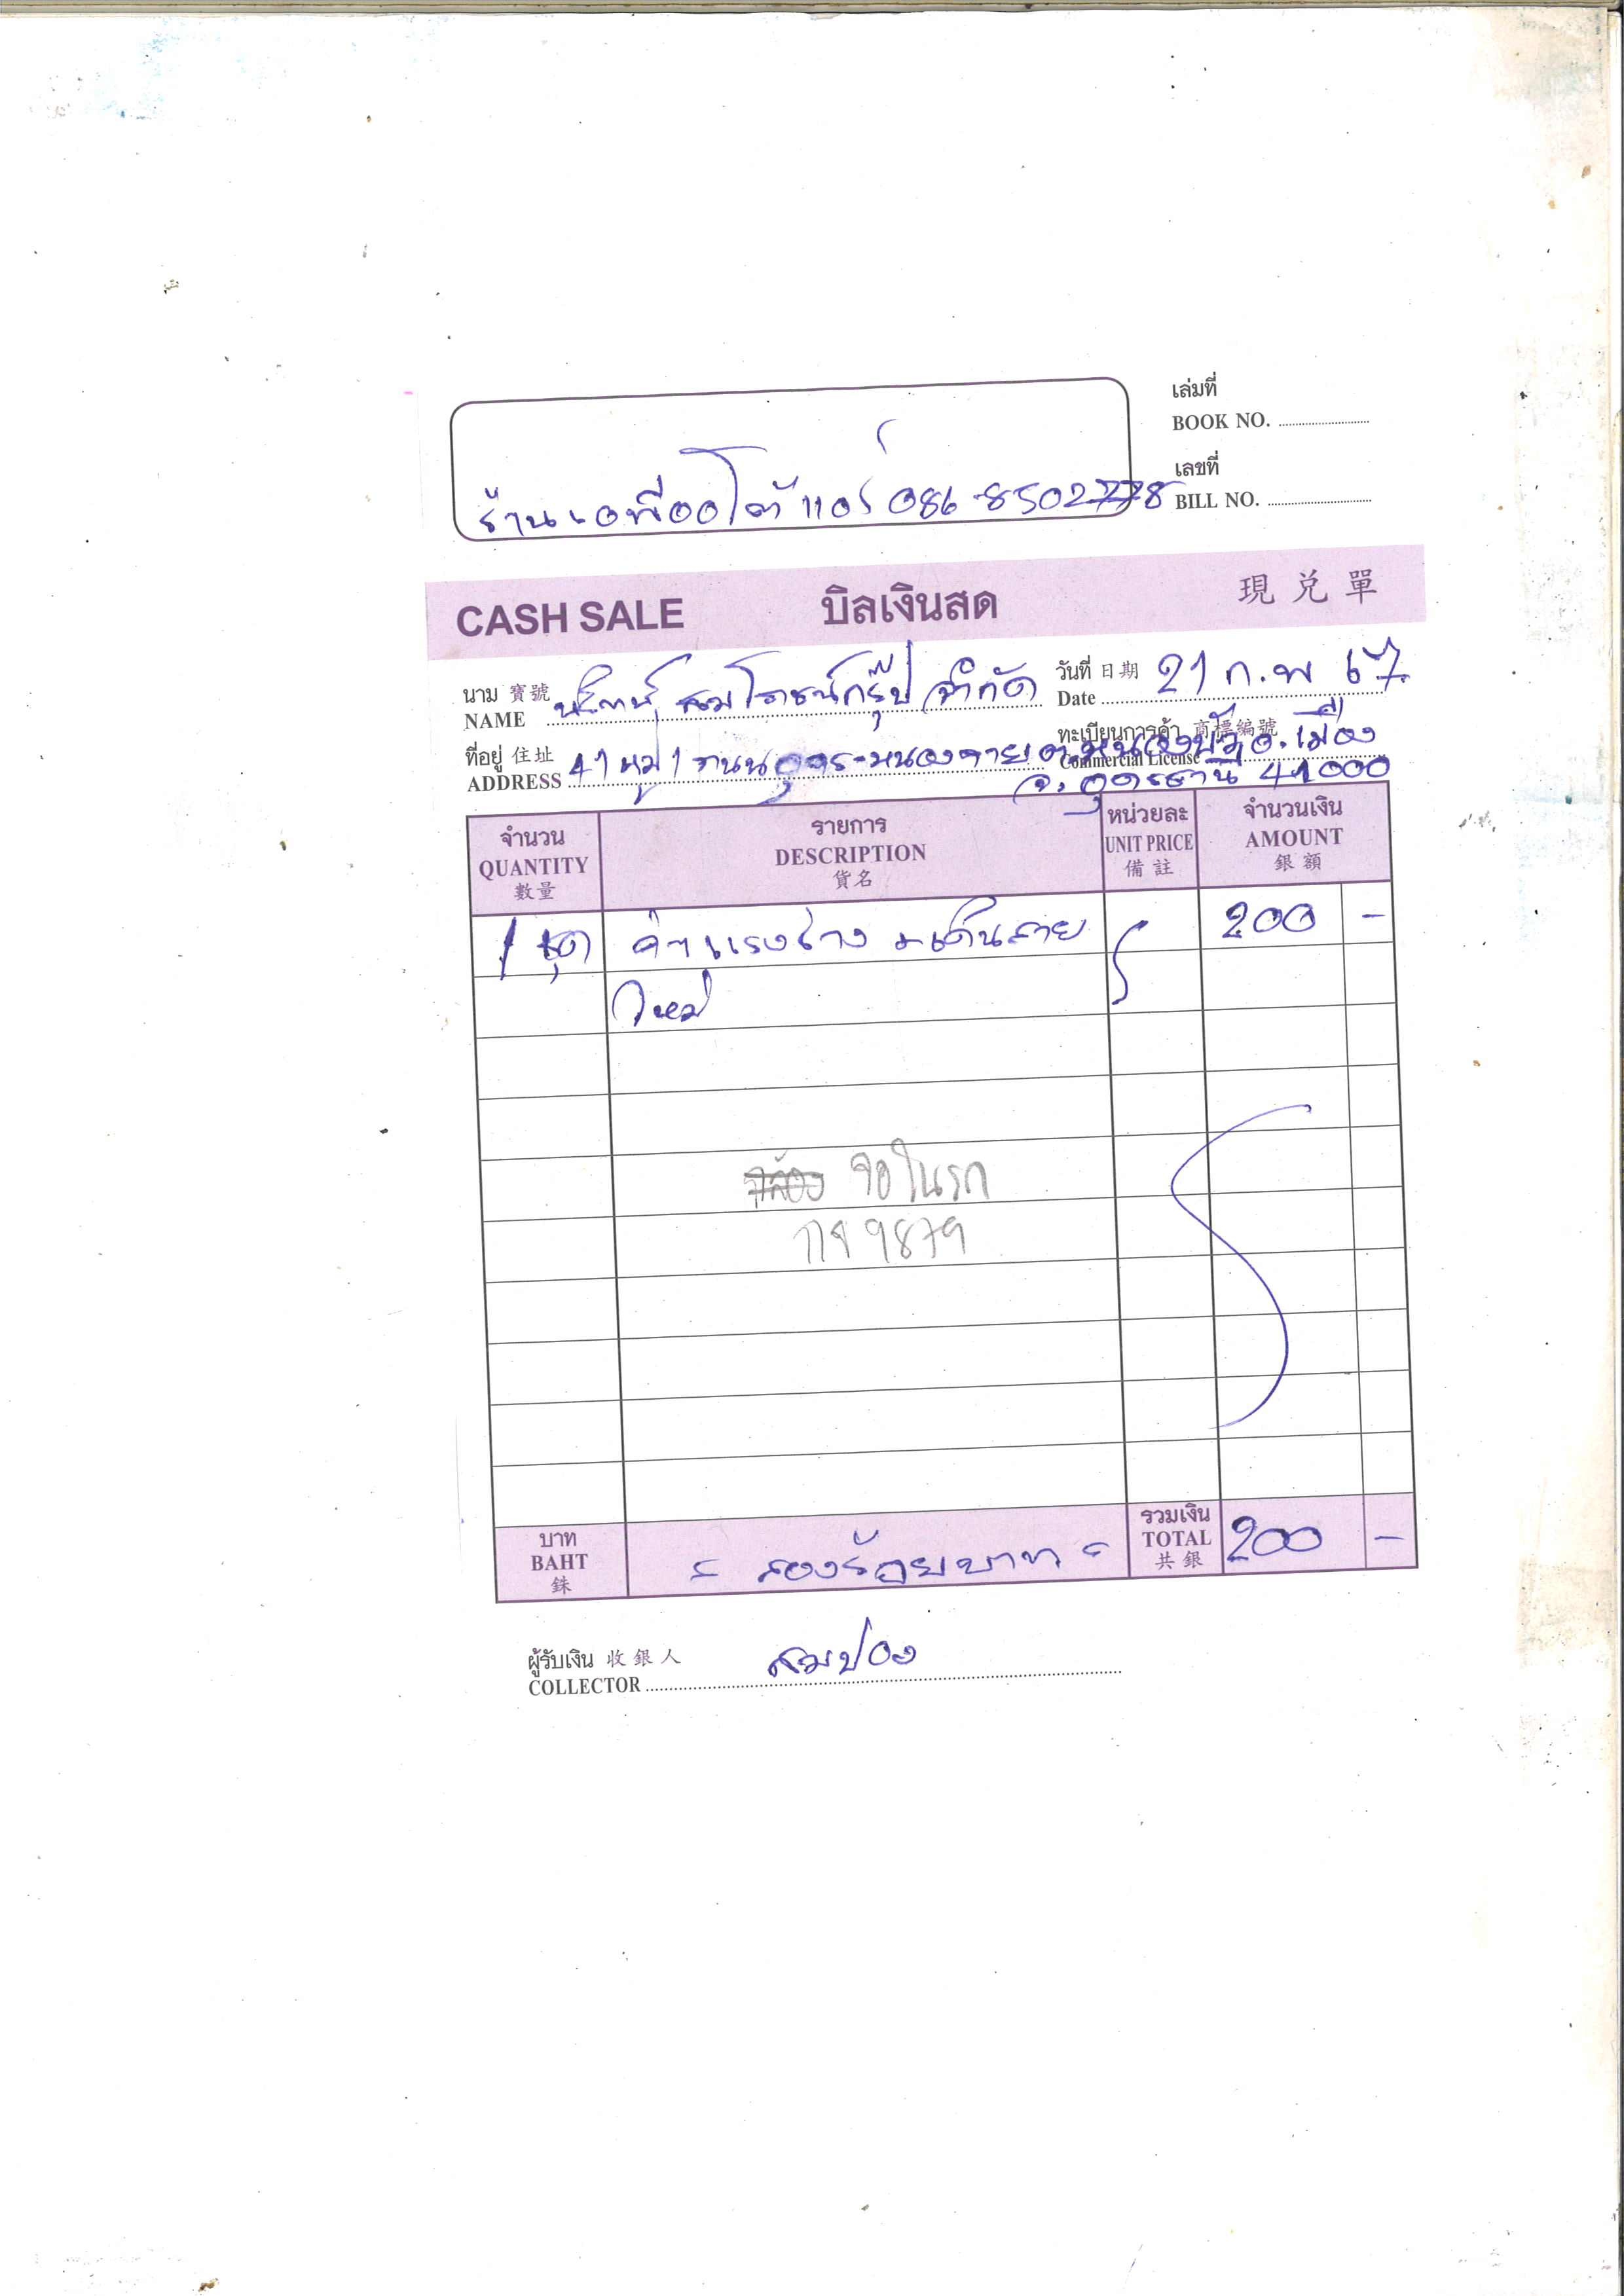 เล่มที่
BOOK NO.
เลขที่
BILL NO.
ร้านเอพีออโต้แอร์ 086-8502778
CASH SALE บิลเงินสด 現兌單
นาม 寶號
NAME บริษัท สมโภชน์กรุ๊ป จำกัด
วันที่ 日期
Date 21 ก.พ 67
ที่อยู่ 住址
ADDRESS 41 หมู่ 1 ถนนอุดร-หนองคาย ต.หนองบัว อ.เมือง
ทะเบียนการค้า 商標編號
Commercial License
จ.อุดรธานี 41000
จำนวน รายการ หน่วยละ จำนวนเงิน
QUANTITY DESCRIPTION UNIT PRICE AMOUNT
數量 貨名 備註 銀額
1 ชุด ค่าแรงช่าง เดินสาย 200 -
ใหม่
จอในรถ
9879
บาท
BAHT
銖
สองร้อยบาท
รวมเงิน
TOTAL
共銀
200 -
ผู้รับเงิน 收銀人
COLLECTOR สมปอง